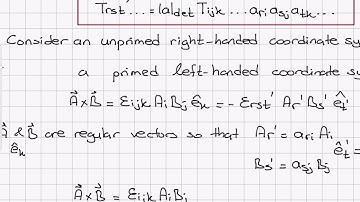 Trst'... = |a|det Tijk ... ari asj atk ...
Consider an unprimed right-handed coordinate sy
a primed left-handed coordinate sy
A⃗×B⃗ = εijk Ai Bj êk = - εrst' Ar' Bs' êt'
A⃗ & B⃗ are regular vectors so that Ar' = ari Ai
êk êt' =
Bs' = asj Bj
A⃗×B⃗ = εijk Ai Bj